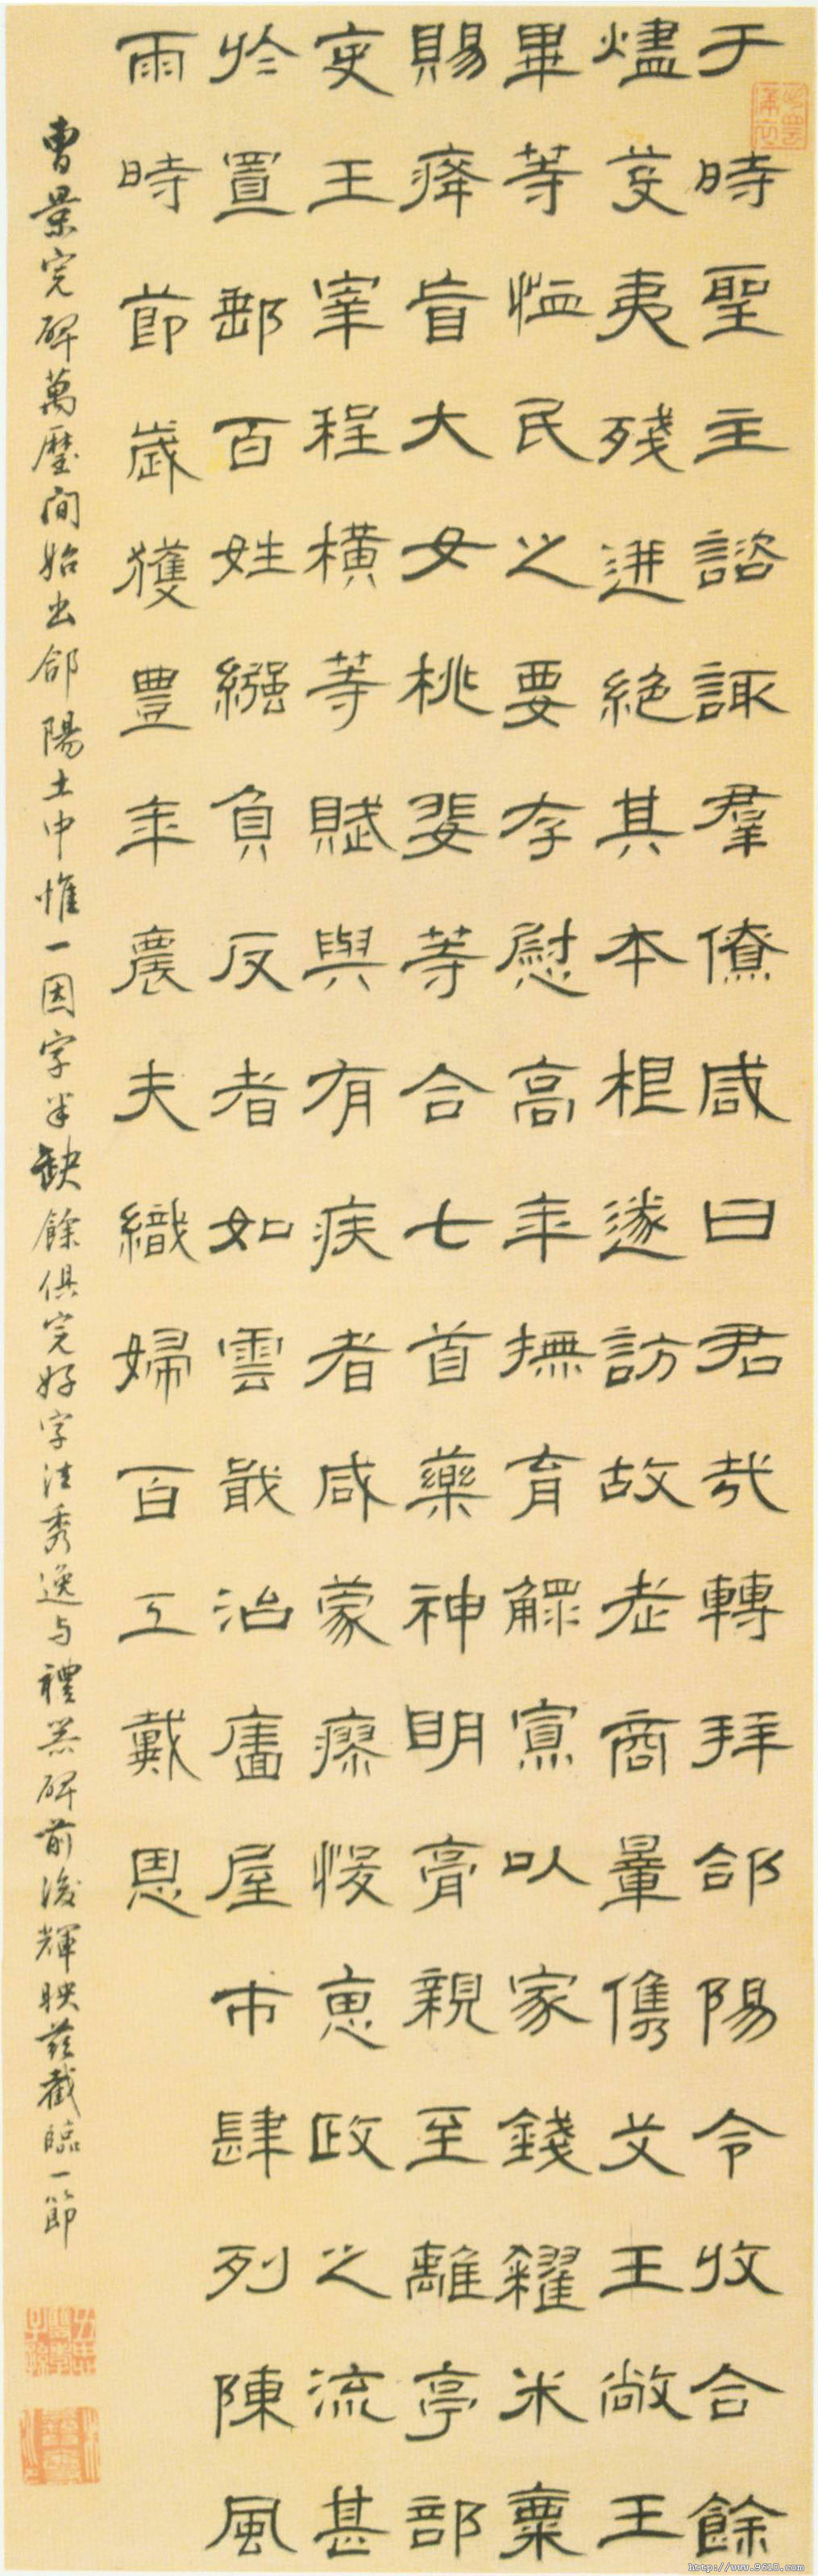 于時聖主諮諏羣僚咸曰君哉轉拜郃陽令收合餘
燼芟夷殘迸絕其本根遂訪故老商量儁艾王敞王
畢等恤民之要存慰高年撫育鰥寡以家錢糴米粟
賜癃盲大女桃婓等合七首藥神明膏親至離亭部
吏王宰程橫等賦與有疾者咸蒙瘳悛惠政之流甚
於置郵百姓繦負反者如雲戢治廧屋市肆列陳風
雨時節歲獲豐年農夫織婦百工戴恩
曹景完碑萬曆间始出郃陽土中惟一因字半缺餘俱完好字法秀逸与禮器碑前後輝映茲截臨一節
http://www.9610.com